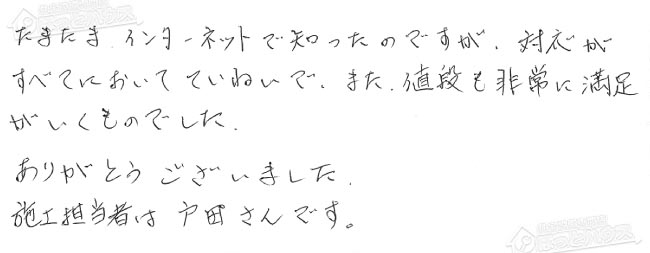 たまたま インターネットで知ったのですが、対応が
すべてにおいてていねいで、また、値段も非常に満足
がいくものでした。
ありがとうございました。
施工担当者は 戸田さんです。